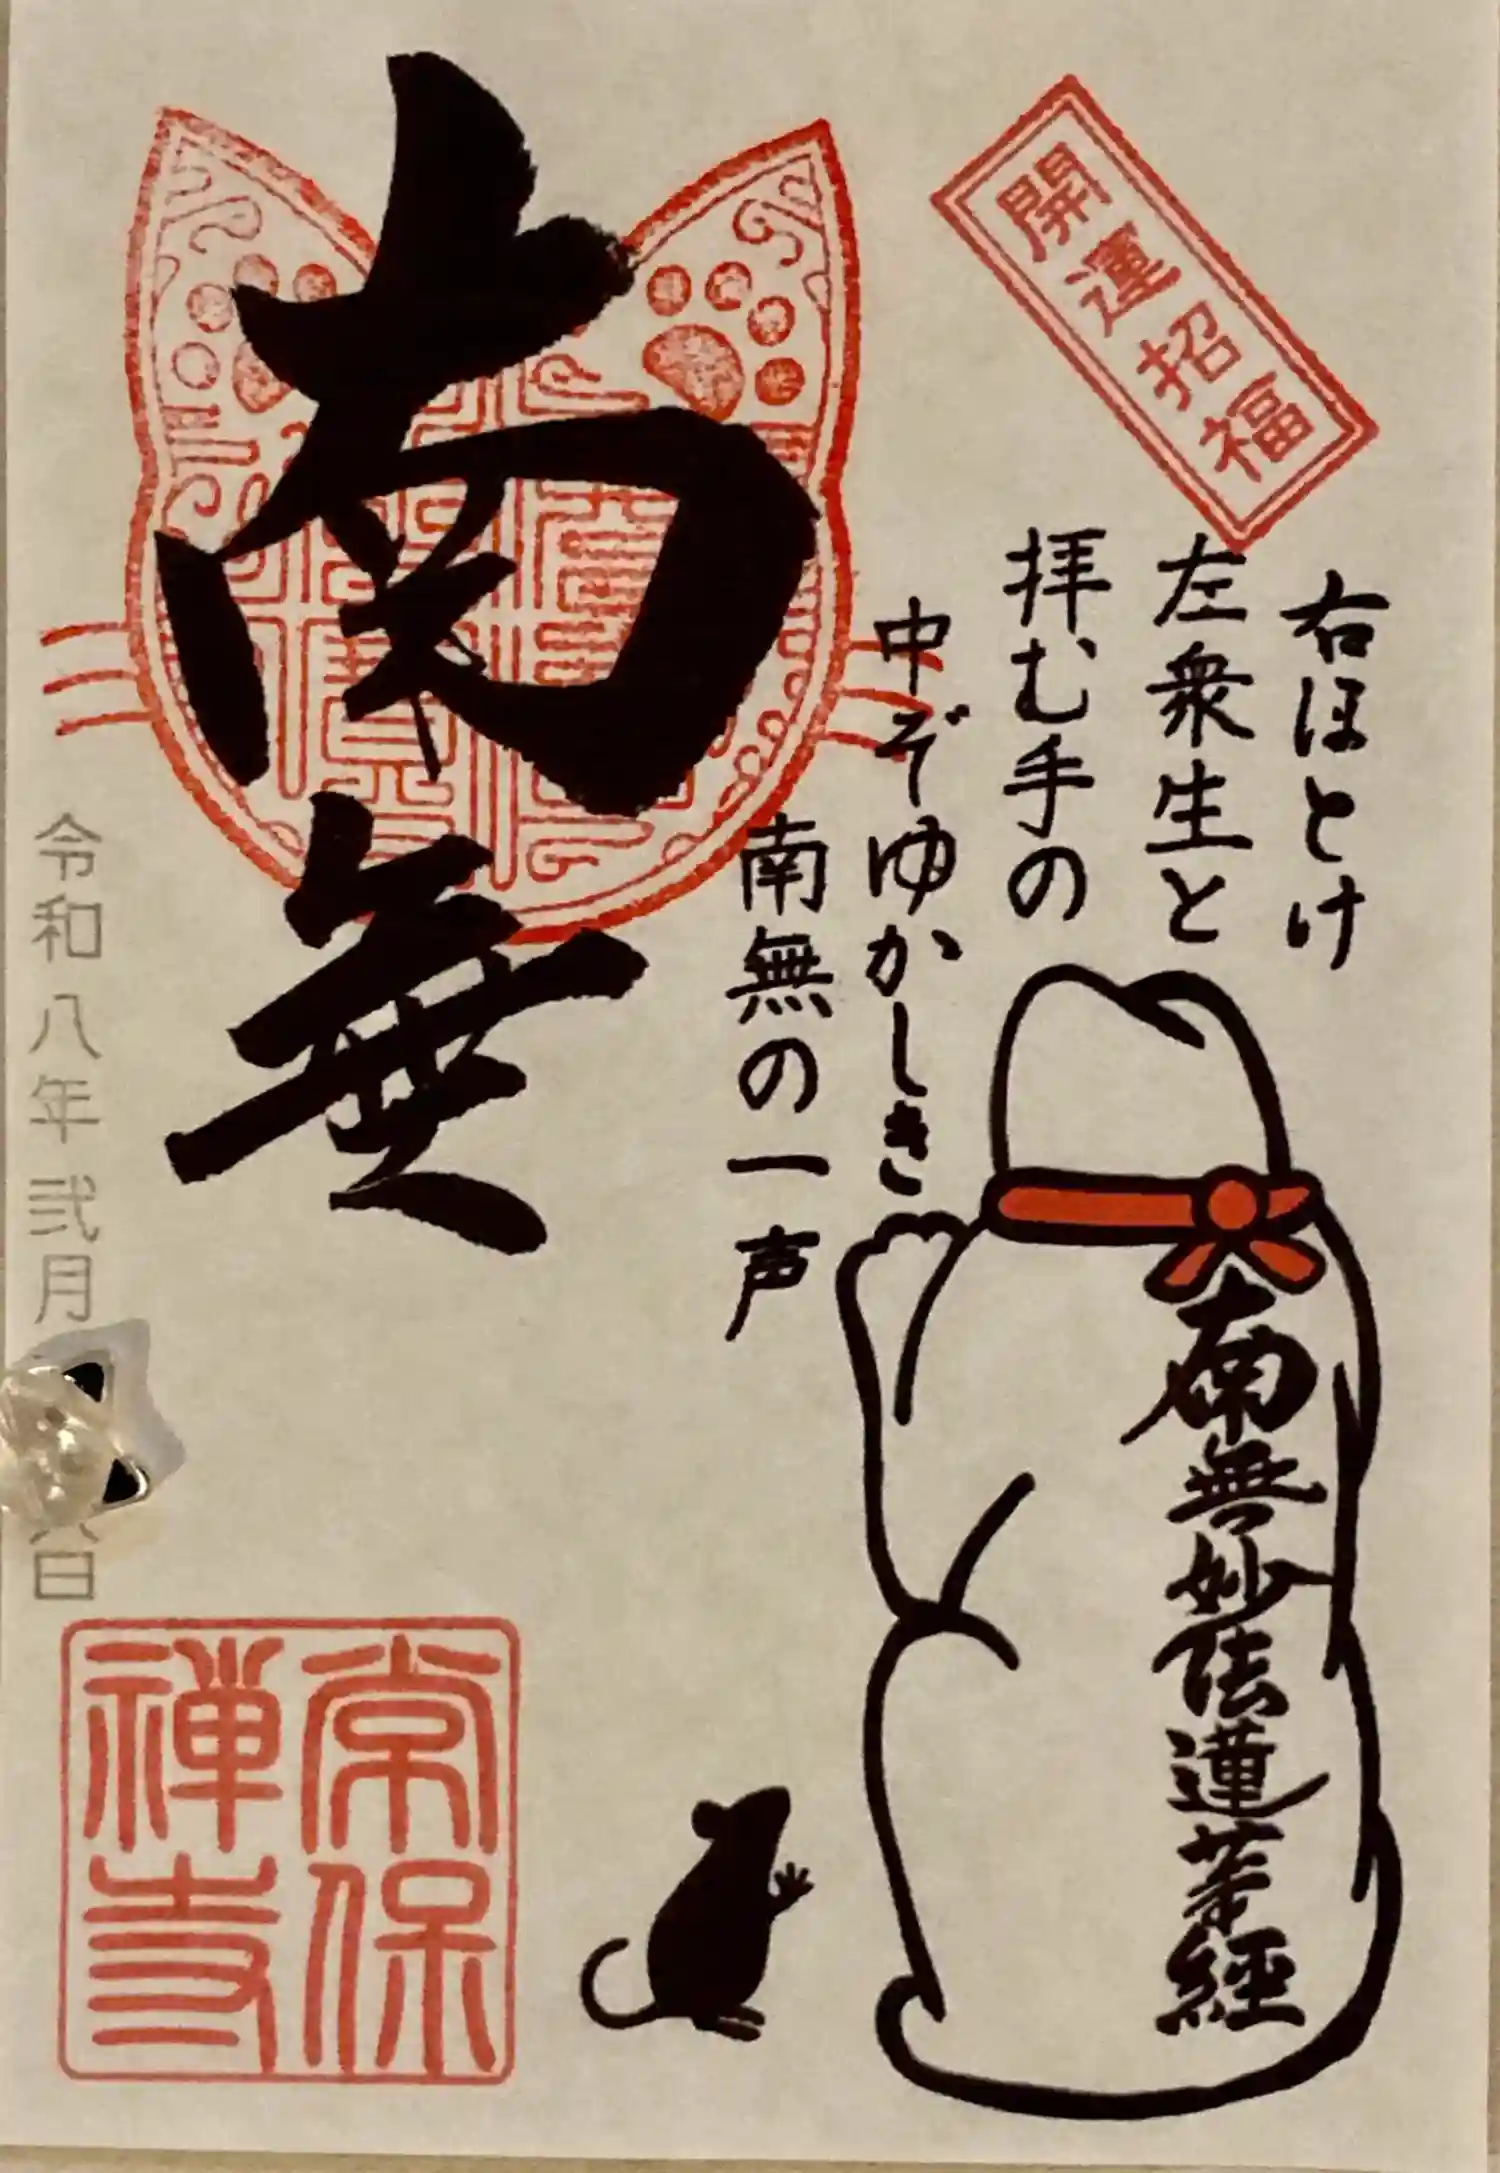 開運招福
右ほとけ
左衆生と
拝む手の
中ぞゆかしき
南無の一声
南無妙法蓮華経
南無
令和八年弍月
日
常保
禅寺